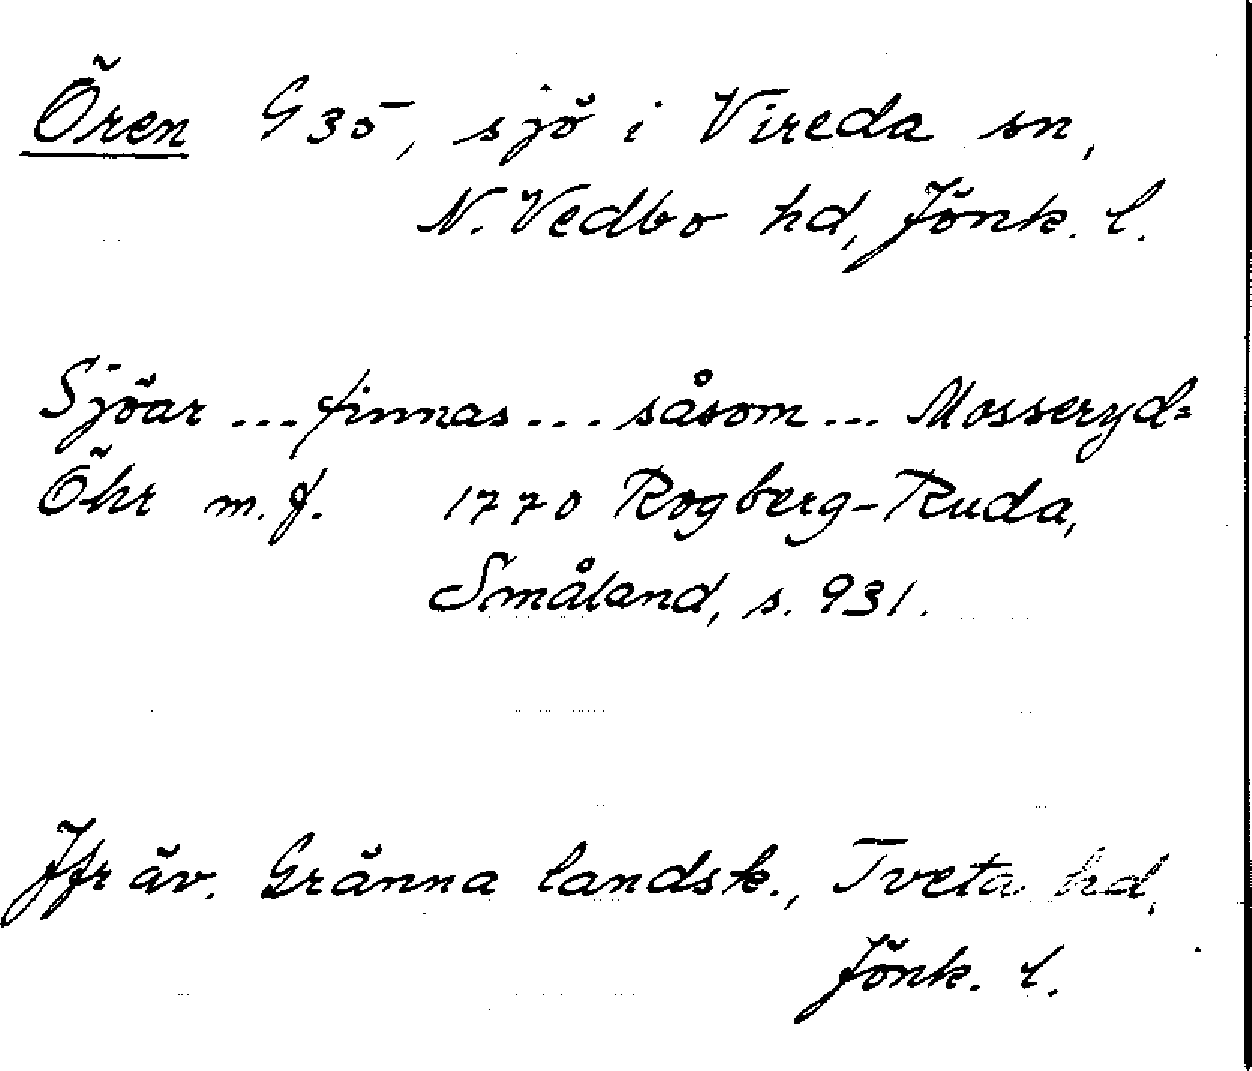 Ören G35, sjö i Vireda sn,
N. Vedbo hd, Jönk. l.
Sjöar ... finnas ... såsom ... Mosseryd=
Öhr m. fl. 1770 Rogberg-Ruda,
Småland, s. 931.
Jfr äv. Gränna landsk., Tveta hd,
Jönk. l.